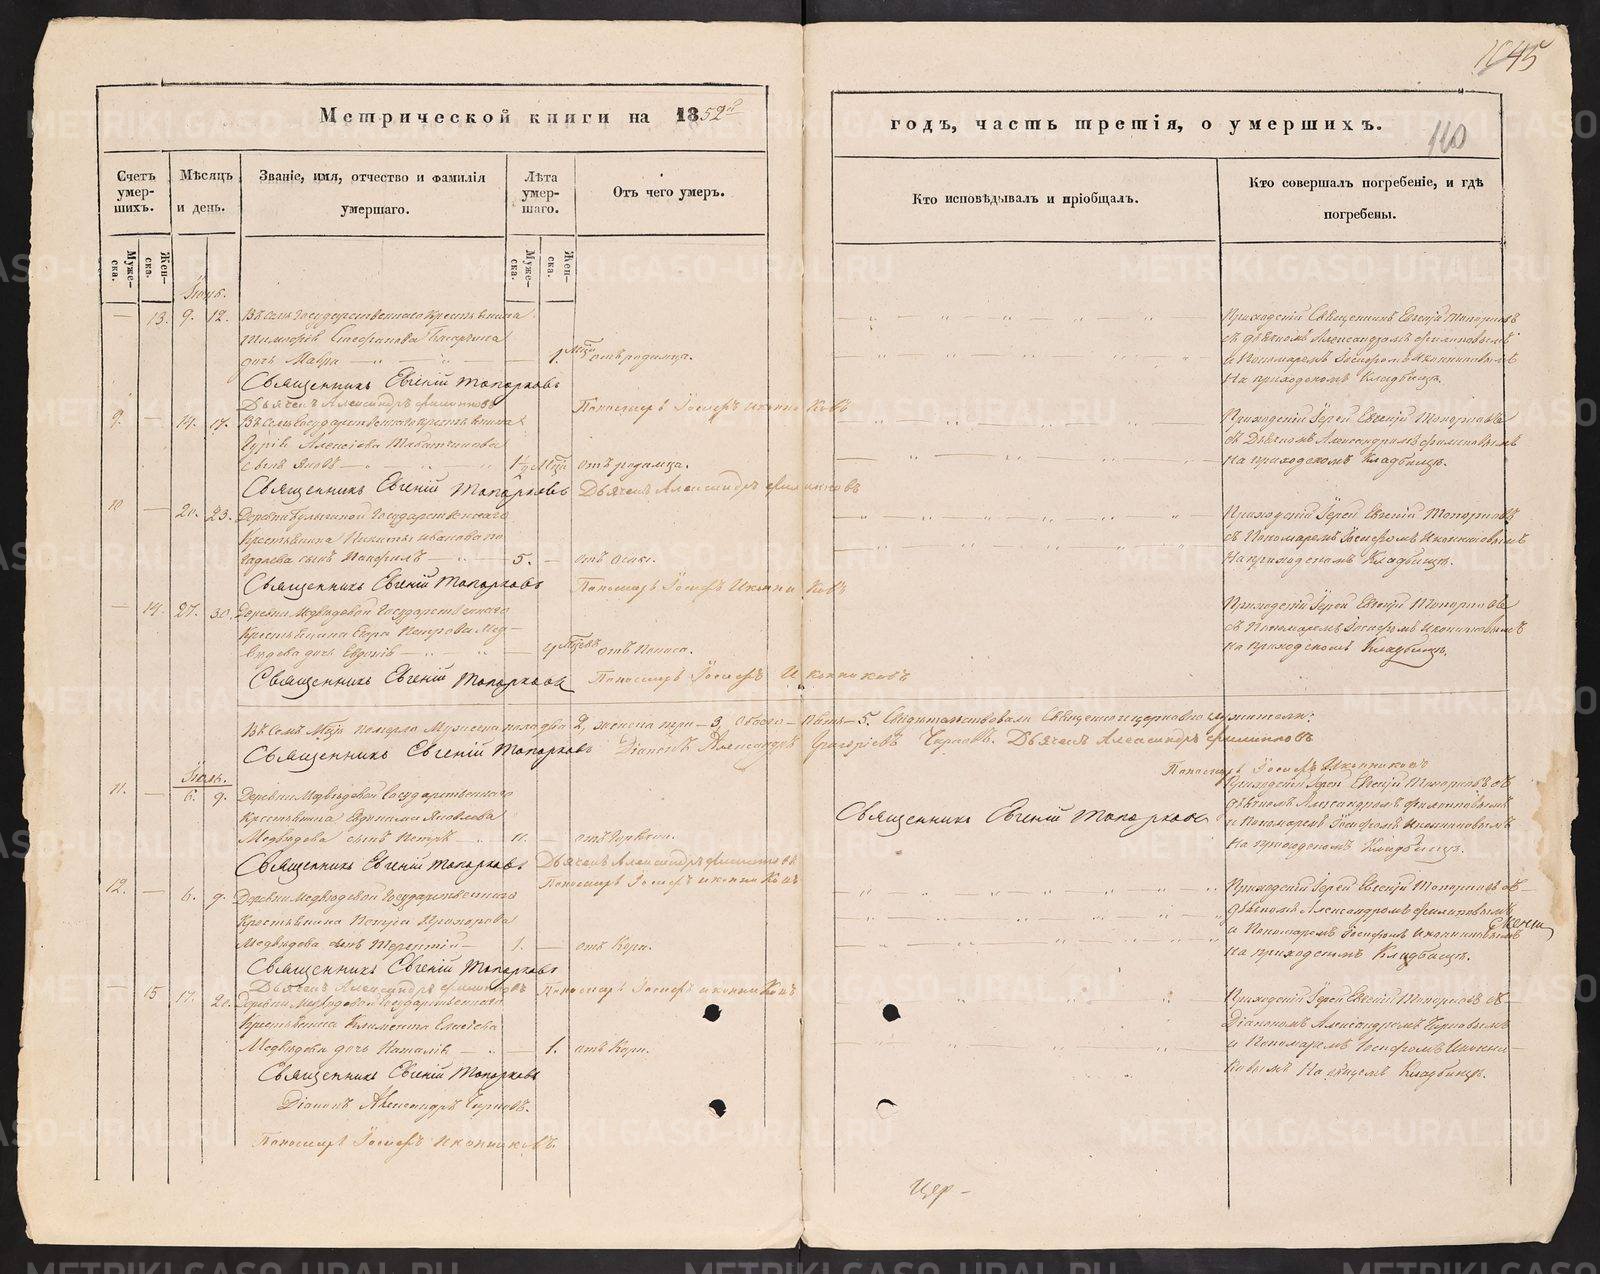 45
110
Метрической книги на 1852й
годъ, часть третія, о умершихъ.
Счетъ умер-шихъ.
Мѣсяцъ и день.
Званіе, имя, отчество и фамилія умершаго.
Лѣта умер-шаго.
Отъ чего умеръ.
Кто исповѣдывалъ и пріобщалъ.
Кто совершалъ погребеніе, и гдѣ погребены.
Муже-ска.
Жен-ска.
Муже-ска.
Жен-ска.
Іюнь.
— 13. 9. 12. Въ селѣ Государственнаго Крестьянина
Тимоѳея Стефанова
дочь Мавра — 1. мца отъ родимца.
Приходскій Священникъ Евгеній Топорковъ
съ дьячкомъ Александромъ Филиповымъ
и Пономаремъ Іосифомъ Иконниковымъ
На приходскомъ Кладбищѣ.
Священникъ Евгеній Топорковъ
Дьячекъ Александръ Филиповъ
Пономарь Іосифъ Иконниковъ
9. — 14. 17. Въ селѣ Государственнаго Крестьянина
Гурія Алексѣева
сынъ Яковъ — 1½ мца отъ родимца.
Приходскій Іерей Евгеній Топорковъ
съ Дьячкомъ Александромъ Филиповымъ
на приходскомъ Кладбищѣ.
Священникъ Евгеній Топорковъ Дьячекъ Александръ Филиповъ
10 — 20. 23. Деревни Государственнаго
Крестьянина Никиты Иванова
сынъ — 5. — отъ оспы.
Приходскій Іерей Евгеній Топорковъ
съ Пономаремъ Іосифомъ Иконниковымъ
На приходскомъ Кладбищѣ.
Священникъ Евгеній Топорковъ Пономарь Іосифъ Иконниковъ
— 14. 27. 30. Деревни Медвѣдевой Государственнаго
Крестьянина Егора Петрова Мед-
вѣдева дочь Евдокія — 4 мцевъ отъ поноса.
Приходскій Іерей Евгеній Топорковъ
съ Пономаремъ Іосифомъ Иконниковымъ
на приходскомъ Кладбищѣ.
Священникъ Евгеній Топорковъ Пономарь Іосифъ Иконниковъ
Въ семъ мцѣ померло Мужеска пола два — 2, женска три — 3, обоего — пять — 5. Свидѣтельствовали Священноцерковнослужители:
Священникъ Евгеній Топорковъ Діаконъ Александръ Григорьевъ Черновъ. Дьячекъ Александръ Филиповъ
Пономарь Іосифъ Иконниковъ
Іюль.
11. — 6. 9. Деревни Медвѣдевой Государственнаго
Крестьянина Евдокима Яковлева
Медвѣдева сынъ Петръ — н. отъ
Священникъ Евгеній Топорковъ
Приходскій Іерей Евгеній Топорковъ съ
дьячкомъ Александромъ Филиповымъ
и Пономаремъ Іосифомъ Иконниковымъ
На приходскомъ Кладбищѣ.
Священникъ Евгеній Топорковъ Дьячекъ Александръ Филиповъ
Пономарь Іосифъ Иконниковъ
12. — 6. 9. Деревни Медвѣдевой Государственнаго
Крестьянина Петра Прохорова
Медвѣдева сынъ Терентій — 1. — отъ Кори.
Приходскій Іерей Евгеній Топорковъ съ
дьячкомъ Александромъ Филиповымъ
и Пономаремъ Іосифомъ Иконниковымъ
на приходскомъ Кладбищѣ.
Священникъ Евгеній Топорковъ
Дьячекъ Александръ Филиповъ Пономарь Іосифъ Иконниковъ
— 15 17. 20. Деревни Медвѣдевой Государственнаго
Крестьянина Климента Елисѣева
Медвѣдева дочь Наталія — 1. отъ Кори.
Приходскій Іерей Евгеній Топорковъ съ
Діакономъ Александромъ Черновымъ
и Пономаремъ Іосифомъ Иконни-
ковымъ На общемъ Кладбищѣ.
Священникъ Евгеній Топорковъ
Діаконъ Александръ Черновъ.
Пономарь Іосифъ Иконниковъ.
Цер-
METRIKI.GASO-URAL.RU